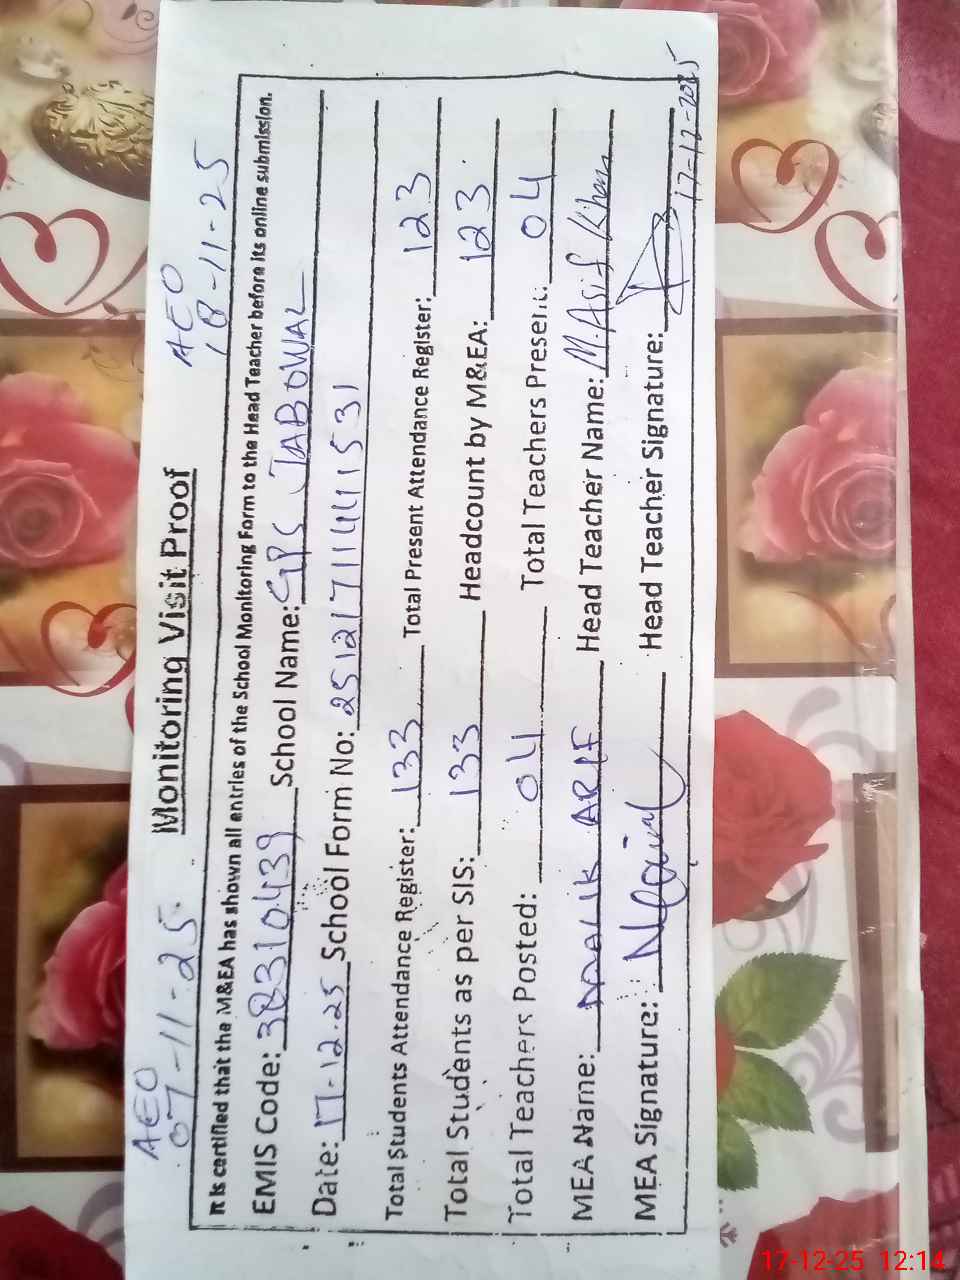 AEO AEO
07-11-25 Monitoring Visit Proof 18-11-25
It is certified that the M&EA has shown all entries of the School Monitoring Form to the Head Teacher before its online submission.
EMIS Code: 38310439 School Name: GPS JABOWAL
Date: 17-12-25 School Form No:
Total Students Attendance Register: 133 Total Present Attendance Register: 123
Total Students as per SIS: 133 Headcount by M&EA: 123
Total Teachers Posted: 04 Total Teachers Present: 04
MEA Name: MALIK ARIF Head Teacher Name: M.Asif Khan
MEA Signature: Head Teacher Signature:
17-12-2025
17-12-25 12:14